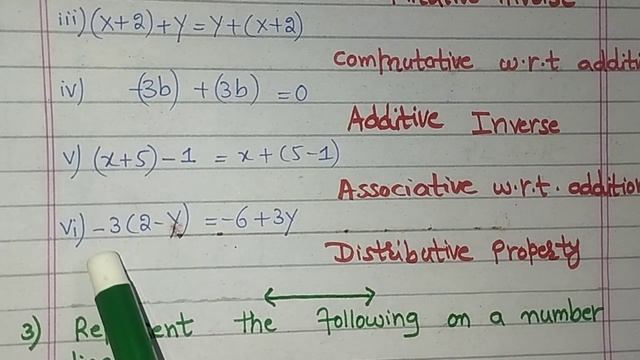 iii) (x+2)+y = y+(x+2)
Commutative w.r.t additi
iv) -(3b) +(3b) = 0
Additive Inverse
v) (x+5)-1 = x+(5-1)
Associative w.r.t. addition
vi) -3(2-y) = -6+3y
Distributive Property
3) Re ent the following on a number